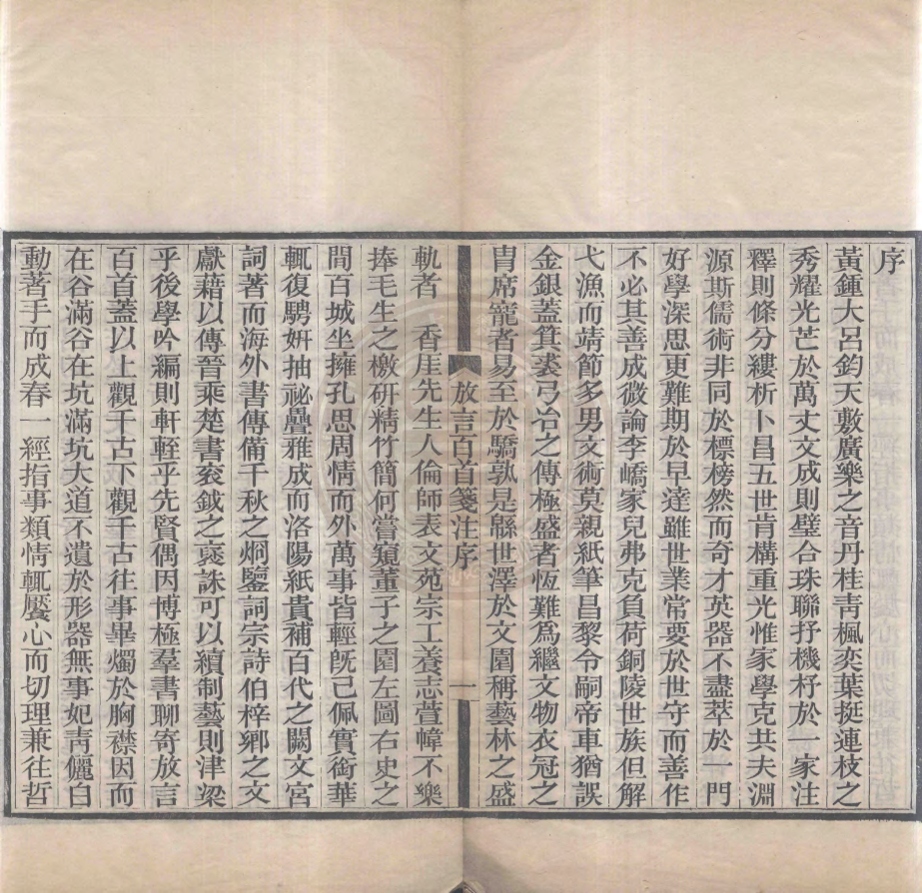 序
黃鍾大呂鈞天敷廣樂之音丹桂靑楓奕葉挺連枝之
秀耀光芒於萬丈文成則璧合珠聯抒機杼於一家注
釋則條分縷析卜昌五世肯構重光惟家學克共夫淵
源斯儒術非同於標榜然而奇才英器不盡萃於一門
好學深思更難期於早達雖世業常要於世守而善作
不必其善成微論李嶠家兒弗克負荷銅陵世族但解
弋漁而靖節多男文術莫親紙筆昌黎令嗣帝車猶誤
金銀蓋箕裘弓冶之傳極盛者恆難爲繼文物衣冠之
冑席寵者易至於驕孰是緜世澤於文圍稱藝林之盛
放言百首箋注序
一
軌者 香厓先生人倫師表文苑宗工養志萱幃不樂
捧毛生之檄研精竹簡何嘗窺董子之園左圖右史之
間百城坐擁孔思周情而外萬事皆輕旣已佩實銜華
輒復騁姸抽祕疊雅成而洛陽紙貴補百代之闕文宮
詞著而海外書傳備千秋之烱鑒詞宗詩伯梓鄕之文
獻藉以傳晉乘楚書袞鉞之襃誅可以續制藝則津梁
乎後學吟編則軒輊乎先賢偶因博極羣書聊寄放言
百首蓋以上觀千古下觀千古往事畢燭於胸襟因而
在谷滿谷在坑滿坑大道不遺於形器無事妃靑儷白
動著手而成春一經指事類情輒饜心而切理兼往哲